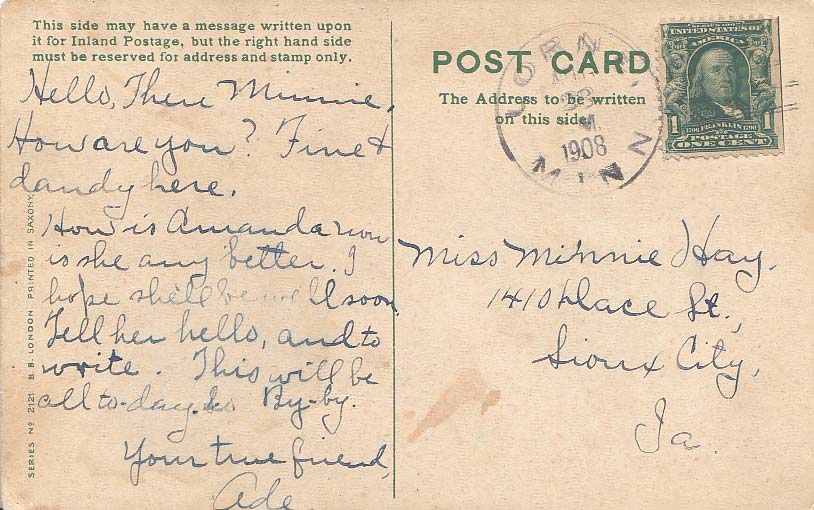 This side may have a message written upon
it for Inland Postage, but the right hand side
must be reserved for address and stamp only.
Hello, There Minnie,
How are you? Fine &
dandy here.
How is Amanda now
is she any better. I
hope she'll be well soon
Tell her hello, and to
write. This will be
all to-day. so By-by.
Your true friend,
Ade
SERIES No 2121 B. B. LONDON PRINTED IN SAXONY
POST CARD
The Address to be written
on this side.
23
M
1908
MINN
SERIES 1902
UNITED STATES OF
AMERICA
1706 FRANKLIN 1790
1 POSTAGE
ONE CENT
Miss Minnie Hay,
1410 Dace St.,
Sioux City,
Ia.